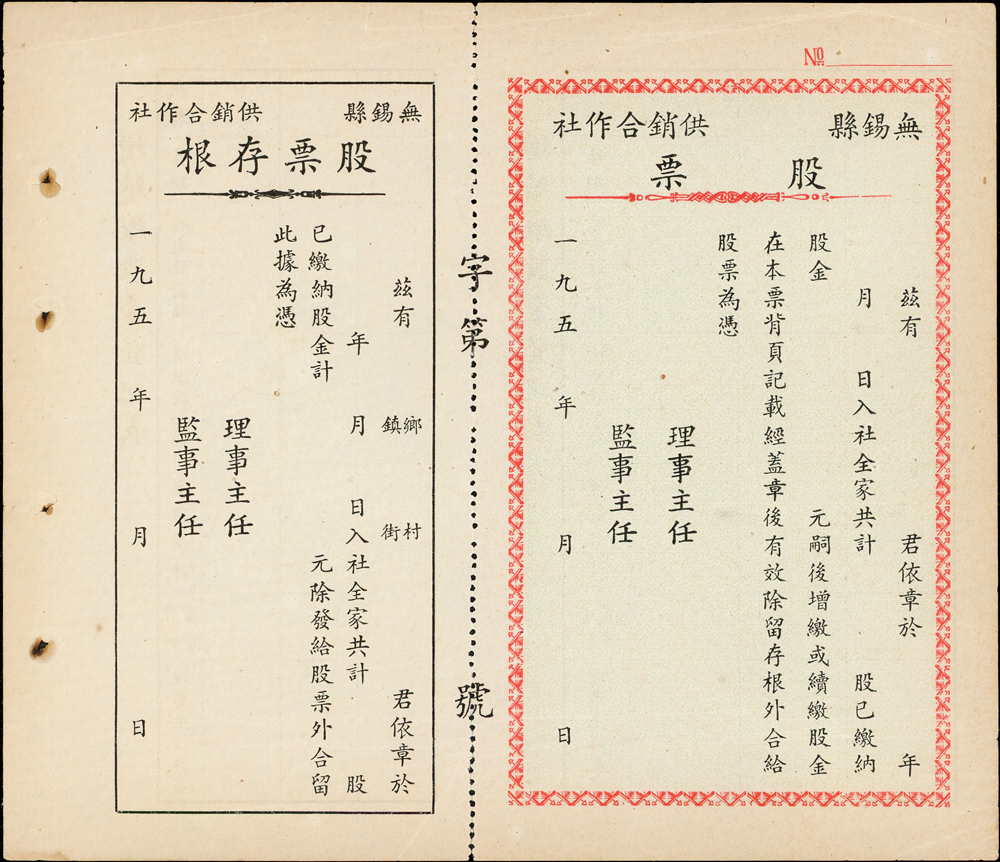 №
無錫縣 供銷合作社
股 票
茲有 君依章於 年
月 日入社全家共計 股已繳納
股金 元嗣後增繳或續繳股金
在本票背頁記載經蓋章後有效除留存根外合給
股票為憑
理事主任
監事主任
一九五 年 月 日
字第 號
無錫縣 供銷合作社
股票存根
茲有 鄉鎮 村街 君依章於
年 月 日入社全家共計 股
已繳納股金計 元除發給股票外合留
此據為憑
理事主任
監事主任
一九五 年 月 日